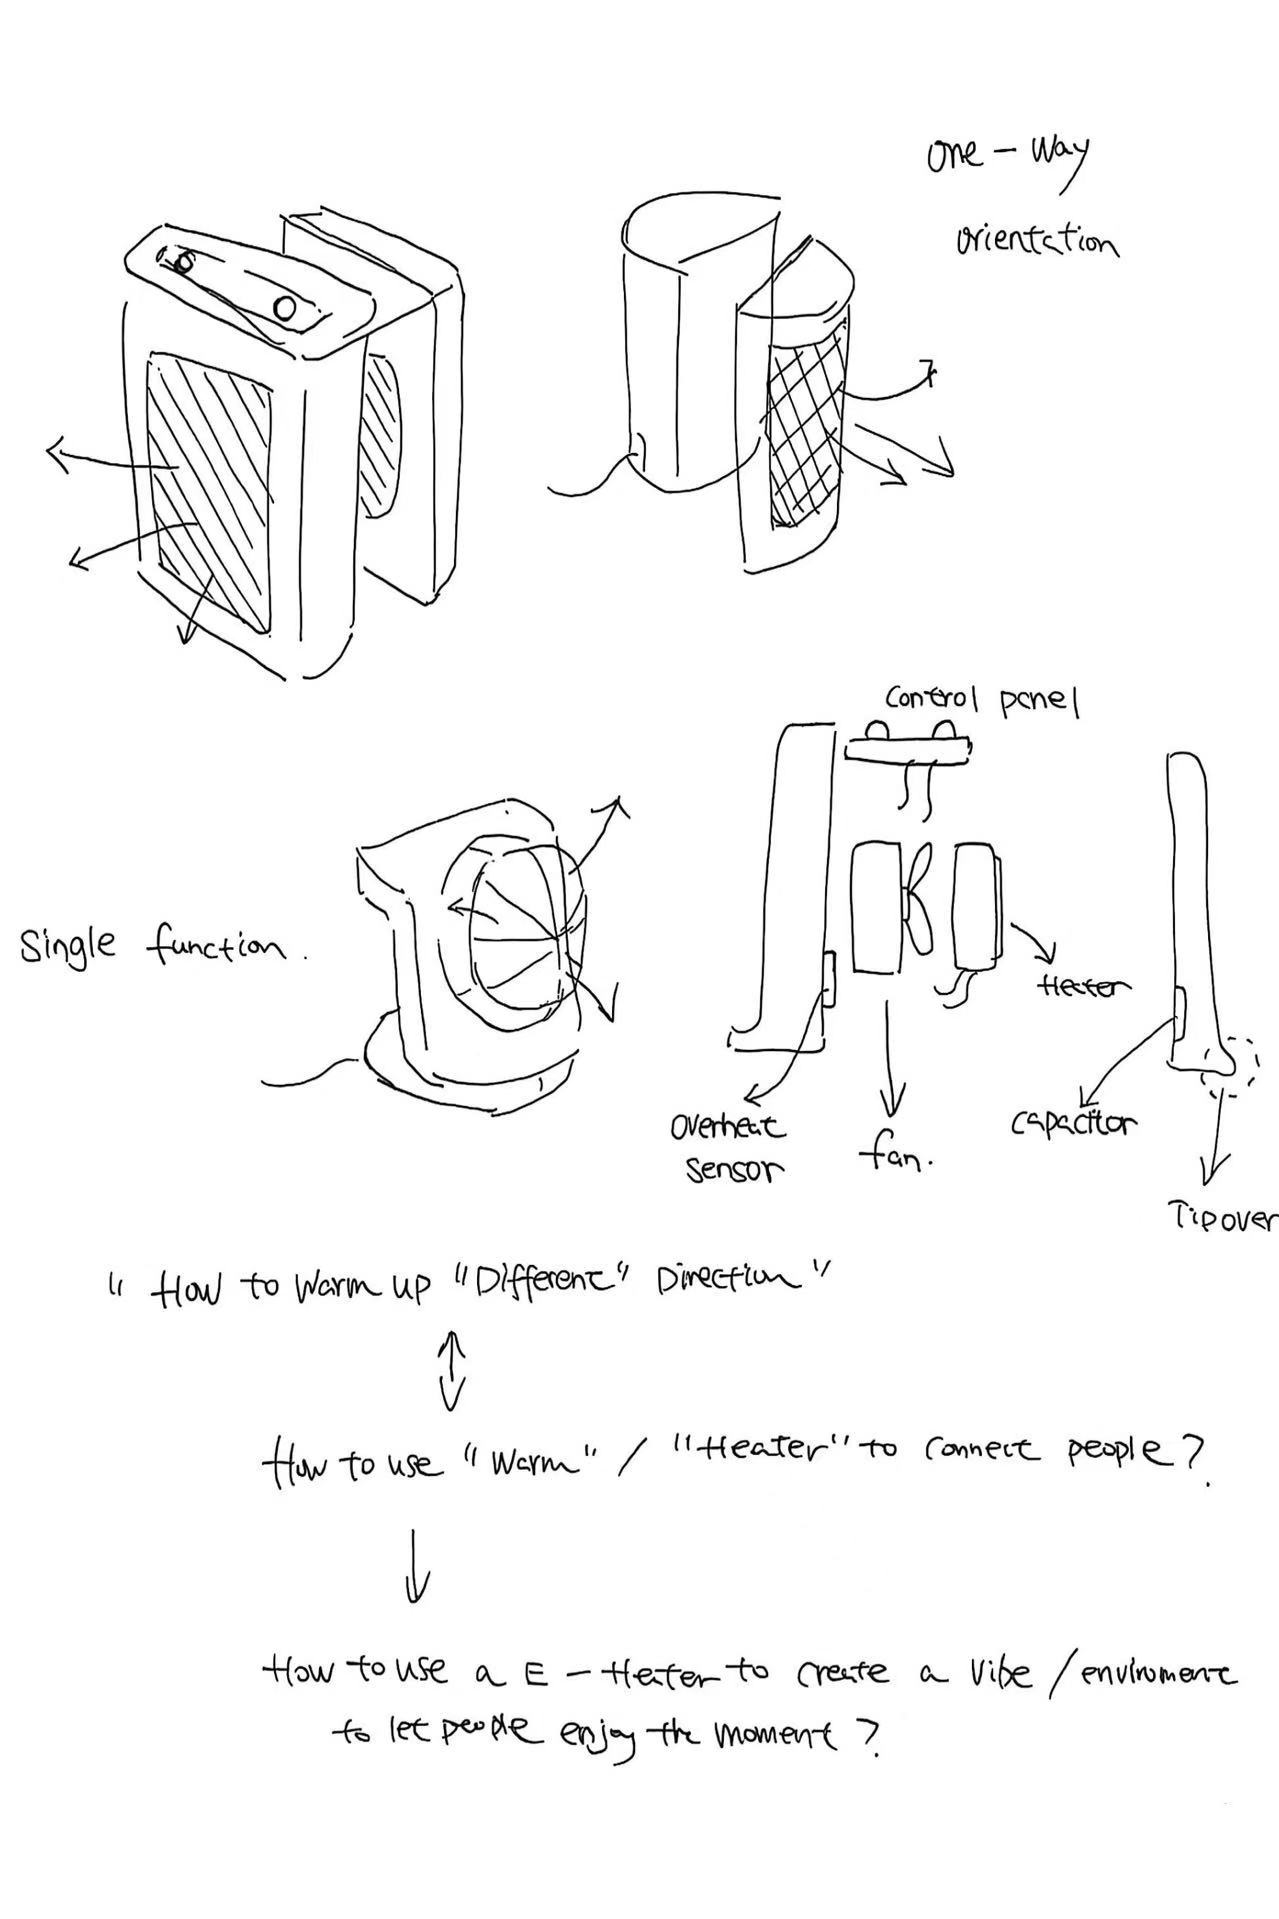 One - Way
orientation
Control panel
Single function.
Heater
Overheat
sensor
fan.
Capacitor
Tipover
" How to warm up "Different" Direction "
How to use "Warm" / "Heater" to connect people?
How to use a E - Heater to create a vibe / enviroment
to let people enjoy the moment ?